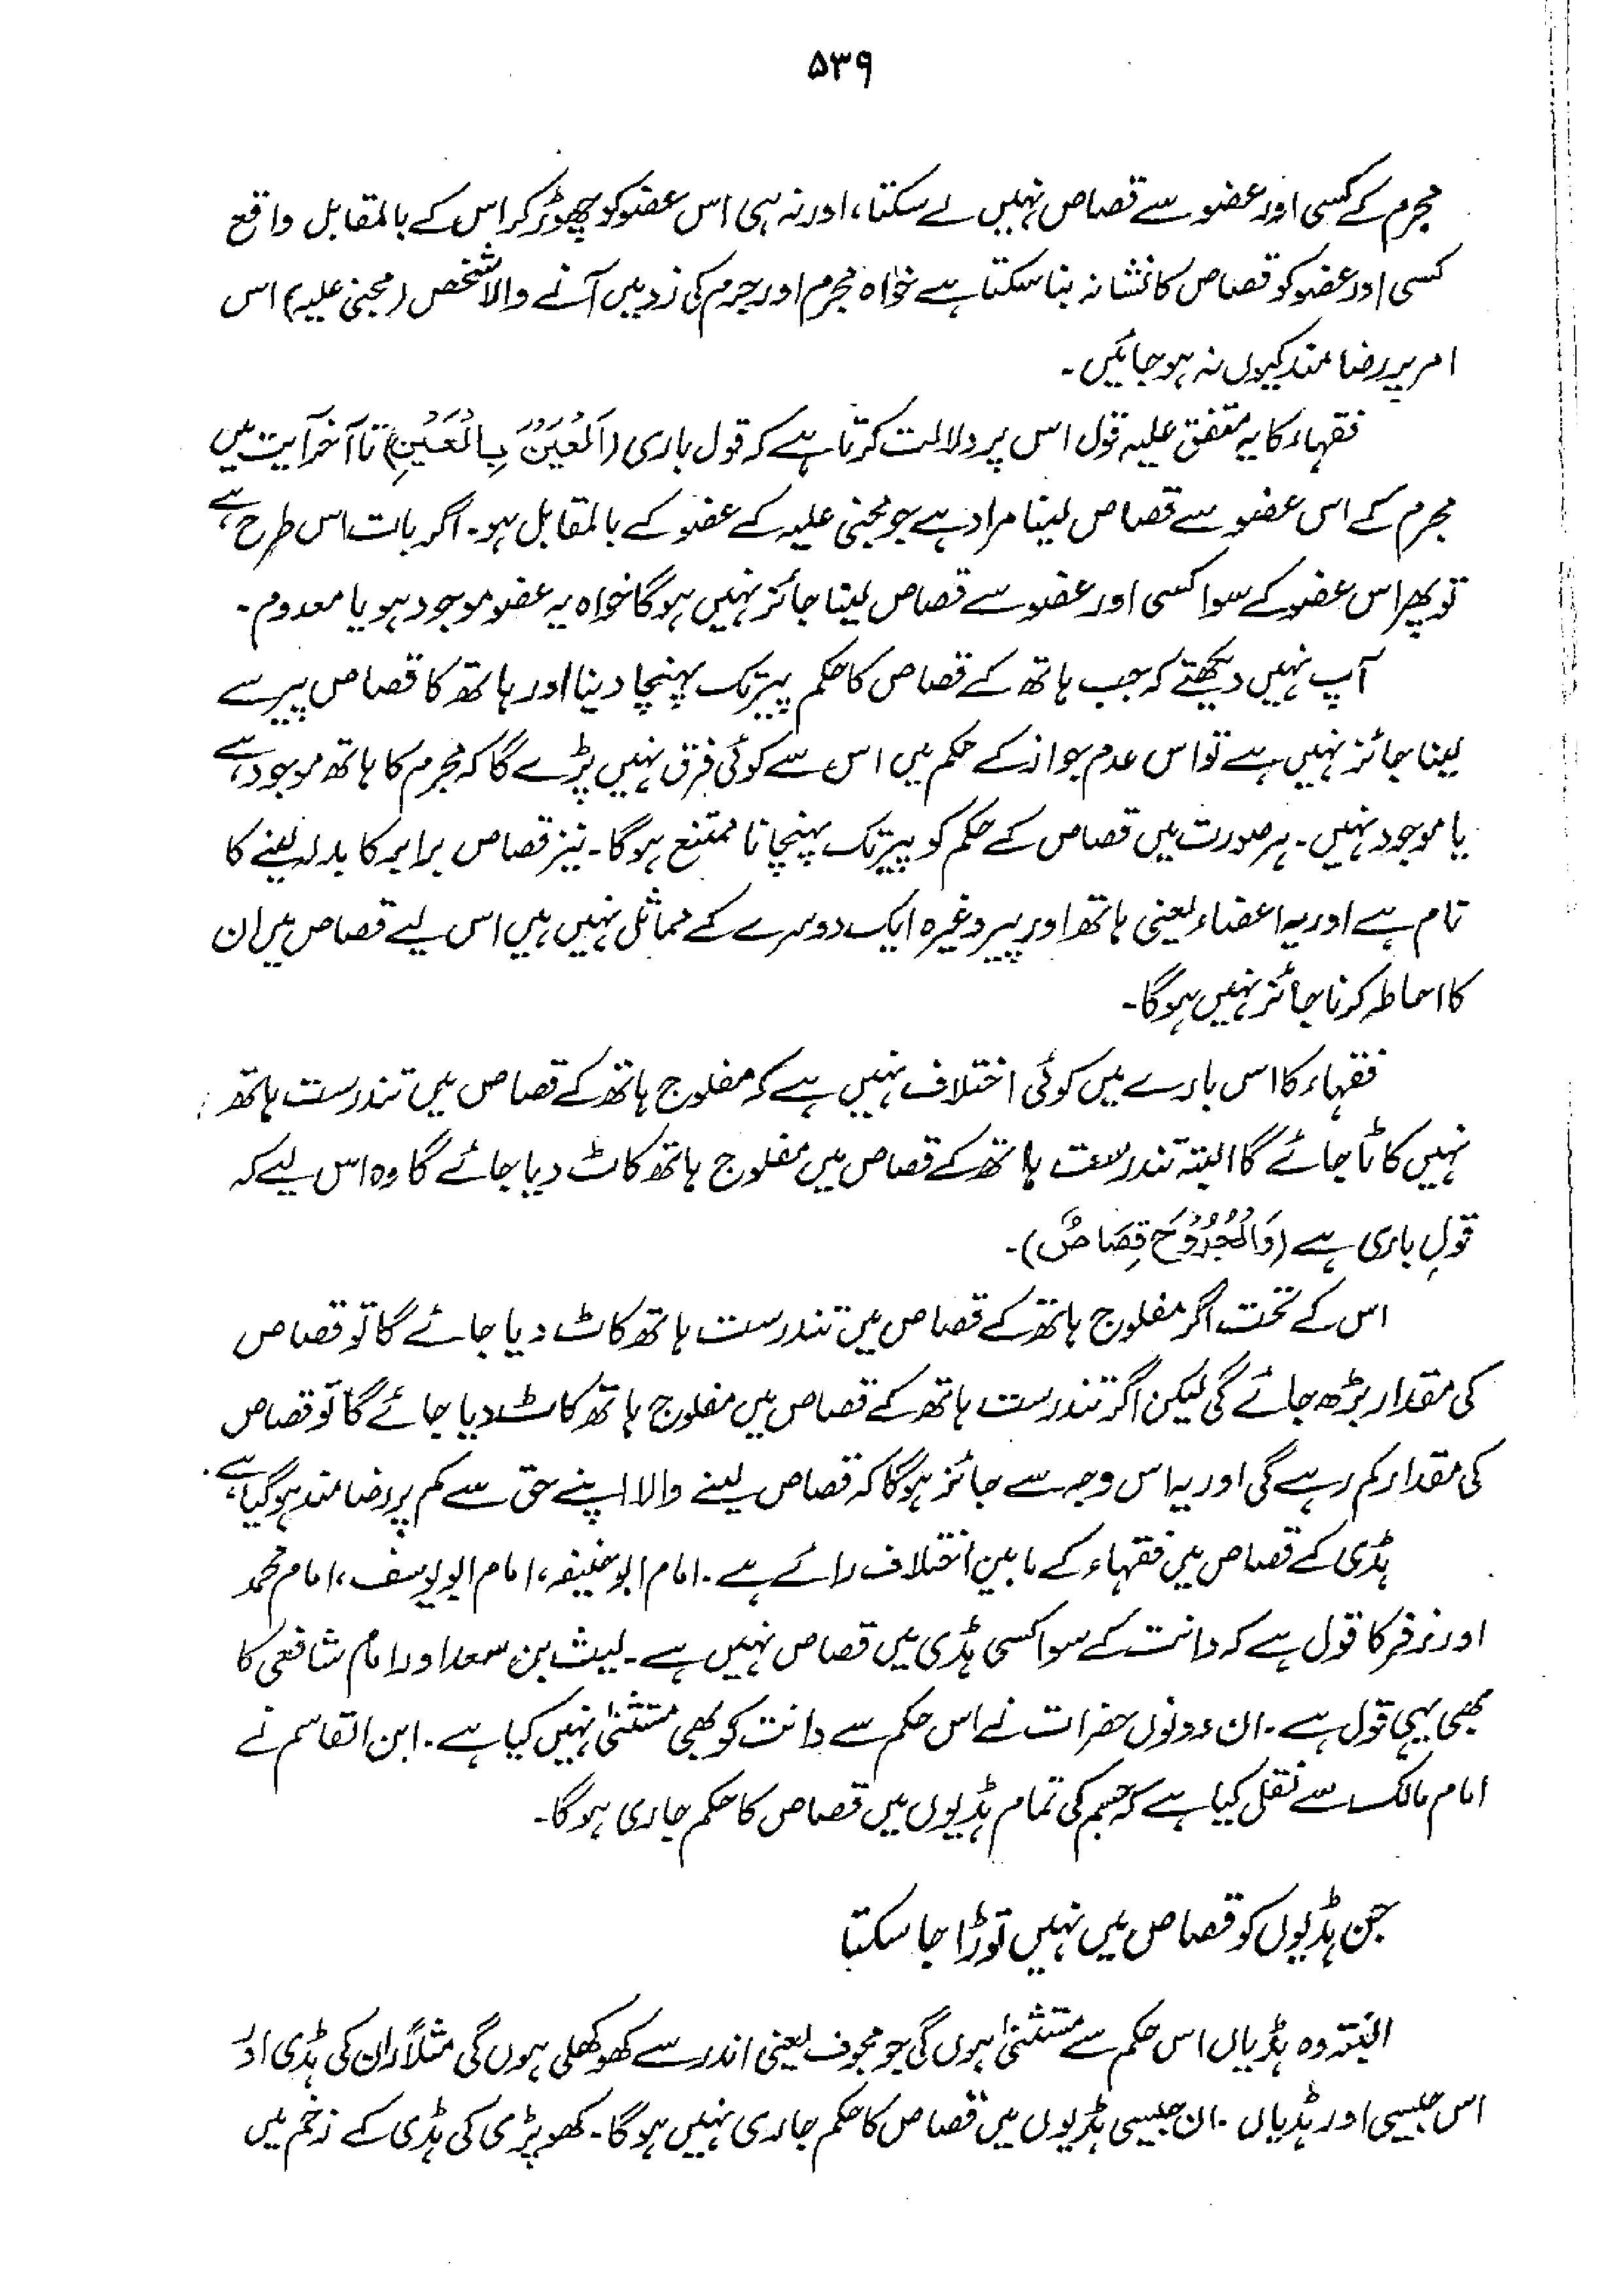 ۵۳۹
مجرم کے کسی اور عضو سے قصاص نہیں لے سکتا، اور نہ ہی اس عضو کو چھوڑ کر اس کے بالمقابل واقع
کسی اور عضو کو قصاص کا نشانہ بنا سکتا ہے خواہ مجرم اور جرم کی زد میں آنے والا شخص (مجنی علیہ) اس
امر پر رضا مند کیوں نہ ہو جائیں۔
فقہاء کا یہ متفق علیہ قول اس پر دلالت کرتا ہے کہ قول باری (اَلْعَيْنَ بِالْعَيْنِ) تا آخر آیت میں
مجرم کے اس عضو سے قصاص لینا مراد ہے جو مجنی علیہ کے عضو کے بالمقابل ہو۔ اگر بات اس طرح ہے
تو پھر اس عضو کے سوا کسی اور عضو سے قصاص لینا جائز نہیں ہوگا خواہ یہ عضو موجود ہو یا معدوم۔
آپ نہیں دیکھتے کہ جب ہاتھ کے قصاص کا حکم پیر تک پہنچا دینا اور ہاتھ کا قصاص پیر سے
لینا جائز نہیں ہے تو اس عدم جواز کے حکم میں اس سے کوئی فرق نہیں پڑے گا کہ مجرم کا ہاتھ موجود ہے
یا موجود نہیں۔ ہر صورت میں قصاص کے حکم کو پیر تک پہنچانا ممتنع ہوگا۔ نیز قصاص برابر کا بدلہ لینے کا
نام ہے اور یہ اعضاء یعنی ہاتھ اور پیر وغیرہ ایک دوسرے کے مماثل نہیں ہیں اس لیے قصاص میں ان
کا احاطہ کرنا جائز نہیں ہوگا۔
فقہاء کا اس بارے میں کوئی اختلاف نہیں ہے کہ مفلوج ہاتھ کے قصاص میں تندرست ہاتھ
نہیں کاٹا جائے گا البتہ تندرست ہاتھ کے قصاص میں مفلوج ہاتھ کاٹ دیا جائے گا وہ اس لیے کہ
قولِ باری ہے (وَالْجُرُوْحَ قِصَاصٌ)۔
اس کے تحت اگر مفلوج ہاتھ کے قصاص میں تندرست ہاتھ کاٹ دیا جائے گا تو قصاص
کی مقدار بڑھ جائے گی لیکن اگر تندرست ہاتھ کے قصاص میں مفلوج ہاتھ کاٹ دیا جائے گا تو قصاص
کی مقدار کم رہے گی اور یہ اس وجہ سے جائز ہوگا کہ قصاص لینے والا اپنے حق سے کم پر رضا مند ہو گیا ہے۔
ہڈی کے قصاص میں فقہاء کے مابین اختلاف رائے ہے۔ امام ابوحنیفہ، امام ابویوسف، امام محمد
اور زفر کا قول ہے کہ دانت کے سوا کسی ہڈی میں قصاص نہیں ہے۔ لیث بن سعد اور امام شافعی کا
بھی یہی قول ہے۔ ان دونوں حضرات نے اس حکم سے دانت کو بھی مستثنیٰ نہیں کیا ہے۔ ابن القاسم نے
امام مالک سے نقل کیا ہے کہ جسم کی تمام ہڈیوں میں قصاص کا حکم جاری ہوگا۔
جن ہڈیوں کو قصاص میں نہیں توڑا جا سکتا
البتہ وہ ہڈیاں اس حکم سے مستثنیٰ ہوں گی جو مجوف یعنی اندر سے کھوکھلی ہوں گی مثلاً ران کی ہڈی اور
اس جیسی اور ہڈیاں۔ ان جیسی ہڈیوں میں قصاص کا حکم جاری نہیں ہوگا۔ کھوپڑی کی ہڈی کے زخم میں